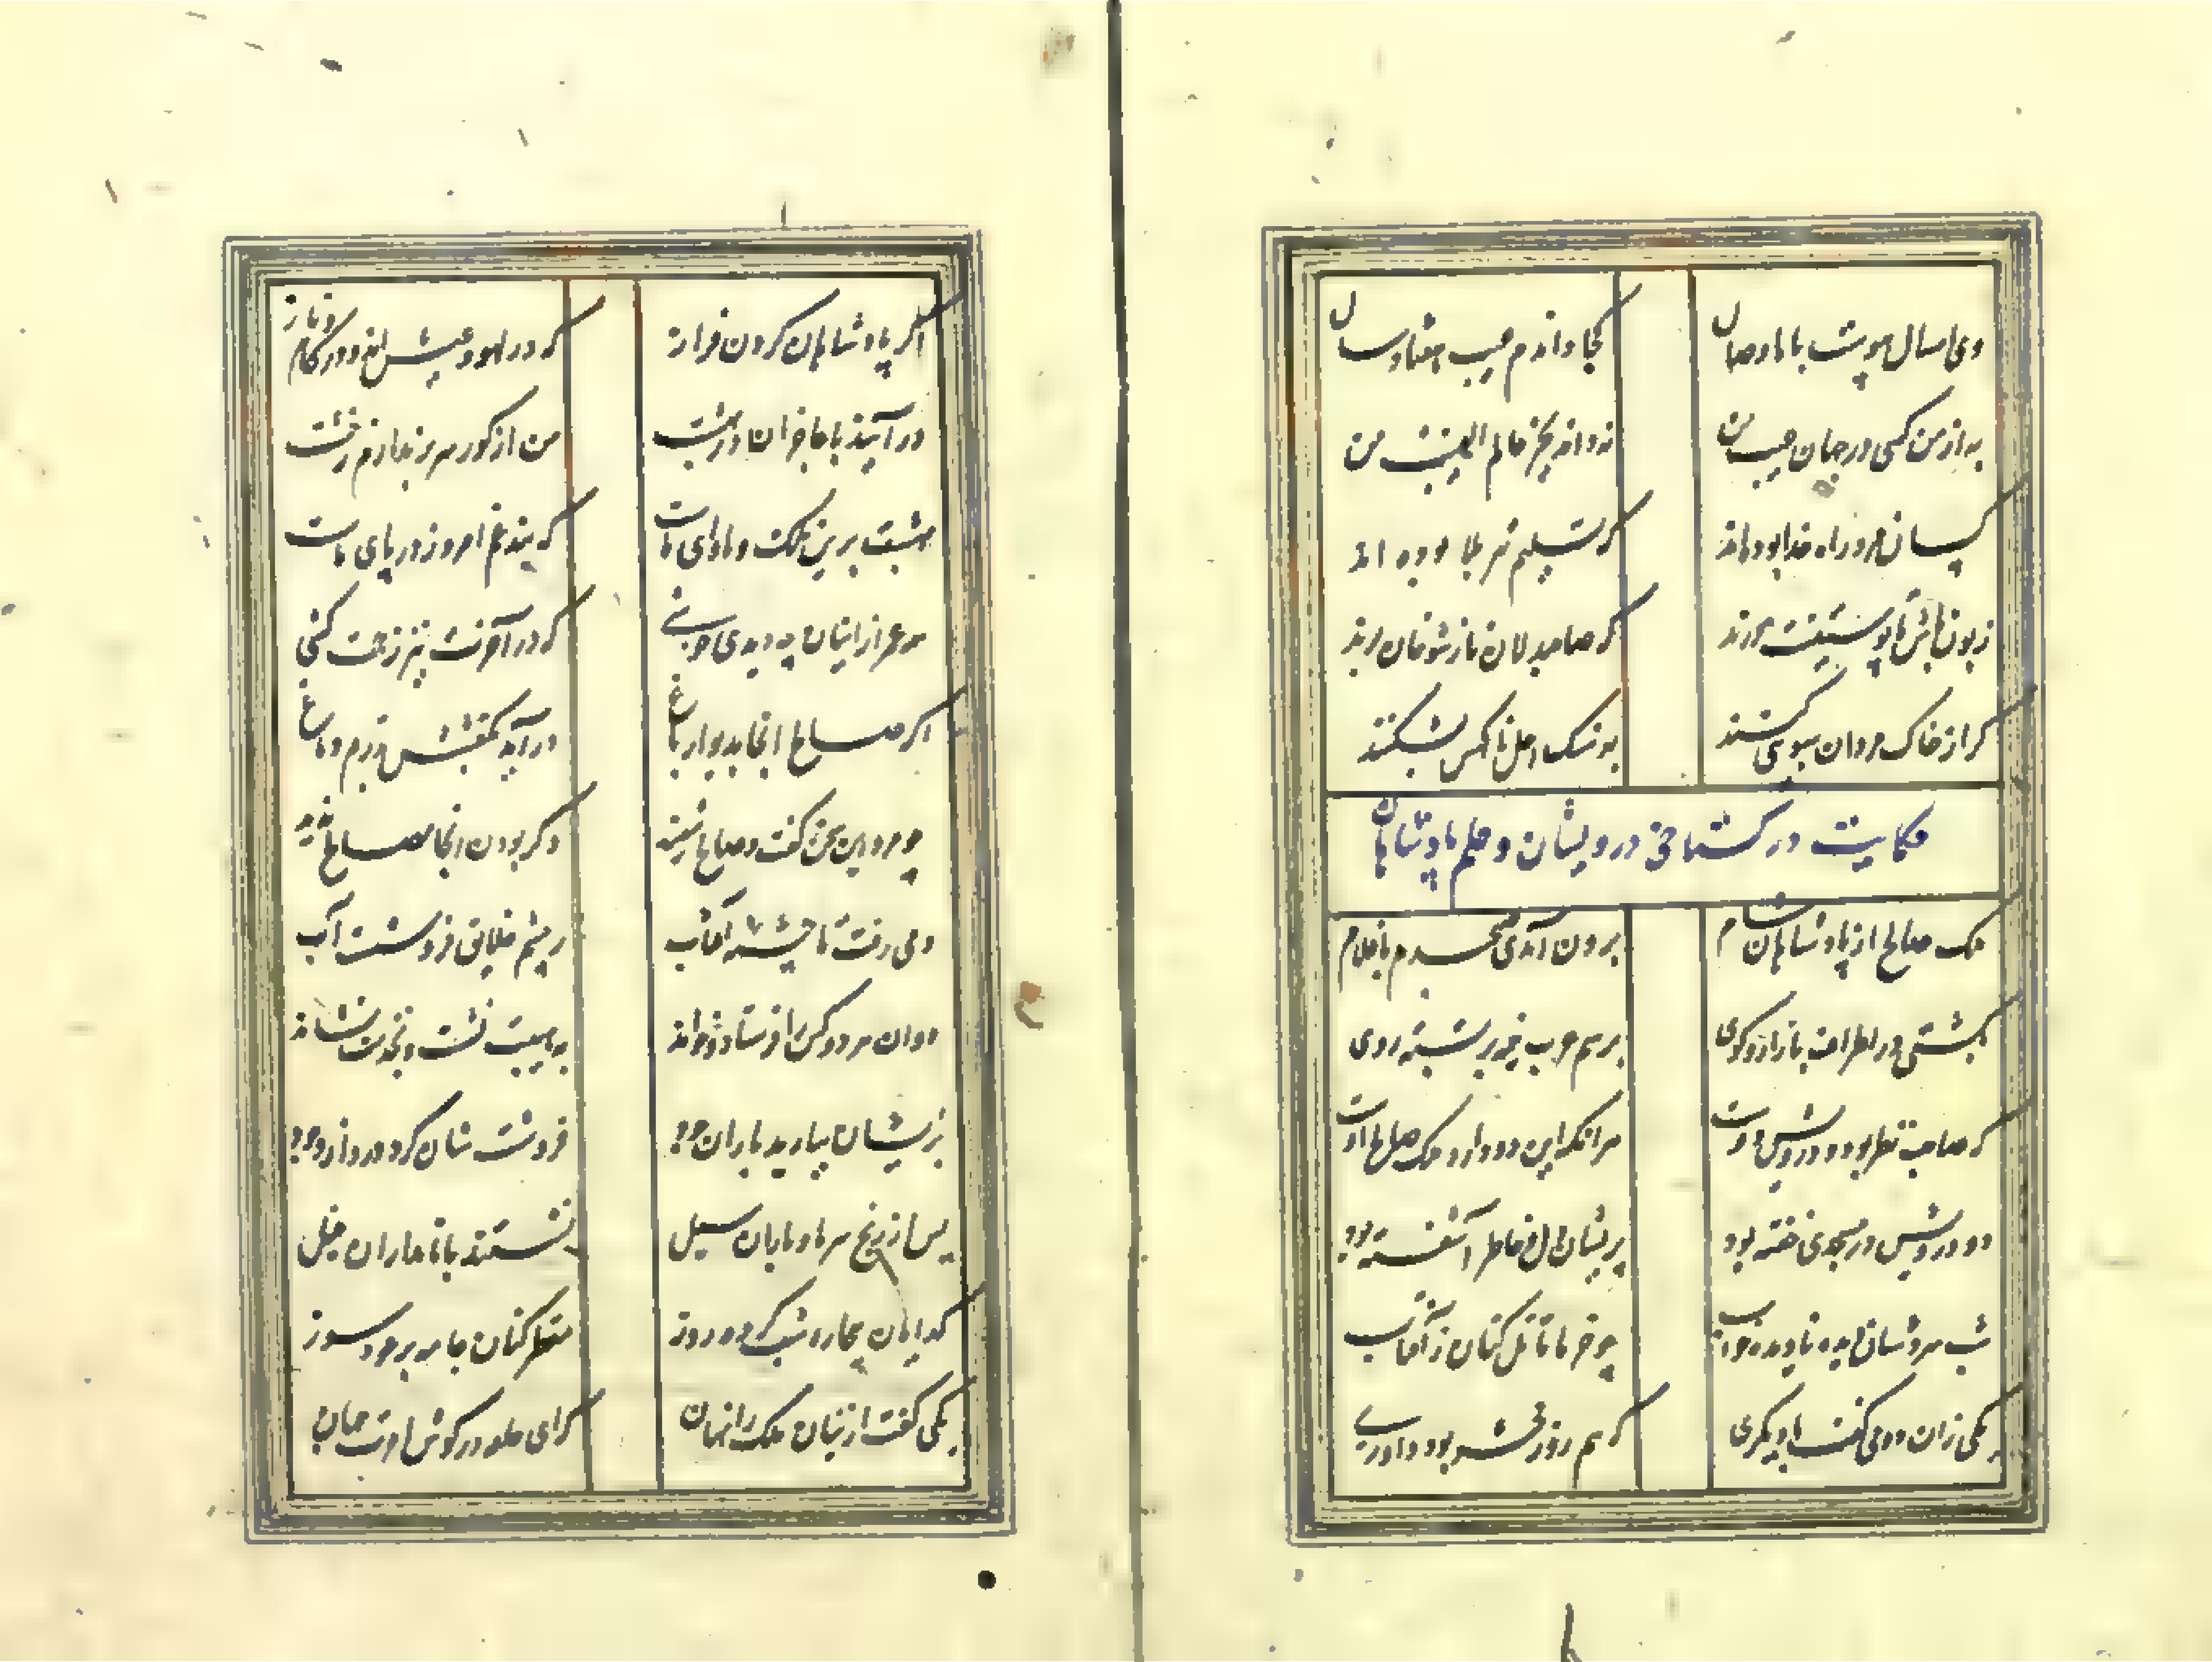 وی امسال پیوست با ما وصال
کجا داندم عیب هفتاد سال
به از من کسی در جهان عیب من
نداند بجز عالم الغیب من
کسان مرد راه خدا بوده‌اند
که تسلیم تیر بلا بوده اند
زبون باش تا پوستینت درند
که صاحبدلان بار شوخان برند
گر از خاک مردان سبوی کنند
بسنگ اهل ناکس بشکنند
حکایت در گستاخی درویشان و حلم پادشاهان
ملک صالح از پادشاهان شام
برون آمدی صبحدم با غلام
بگشتی در اطراف بازار و کوی
برسم عرب نیمه بر بسته روی
که صاحب نظر بود و درویش دوست
هر آنک این دو دارد ملک صالح اوست
دو درویش در مسجدی خفته بود
پریشان دل و خاطر آشفته بود
شب سردشان دیده نابرده خواب
چو حربا تامل کنان ز آفتاب
یکی زان دو می گفت با دیگری
که هم روز محشر بود داوری
اگر پادشاهان گردن فراز
که در لهو و عیش اند و در کام و ناز
در آیند با عاجزان در بهشت
من از گور سر بر ندارم ز خشت
بهشت برین ملک و ماوای ماست
که بند غم امروز در پای ماست
همه عمر از اینان چه دیدی خوشی
که در آخرت نیز زحمت کشی
اگر صالح انجا بدیوار باغ
در آید بکفشش بدرم دماغ
چو مرد این سخن گفت و صالح شنید
دگر بودن انجا مصالح ندید
دمی رفت تا چشمه آفتاب
ز چشم خلایق فرو شست آب
دوان هر دو کس را فرستاد و خواند
به هیبت نشست و بحرمت نشاند
بر ایشان ببارید باران جود
فرو شست شان گرد ذل از وجود
پس از رنج سرما و باران سیل
نشستند با نامداران خیل
گدایان بی جامه شب کرده روز
معطر کنان جامه بر عود سوز
یکی گفت از اینان ملک را نهان
که ای حلقه در گوش امرت جهان